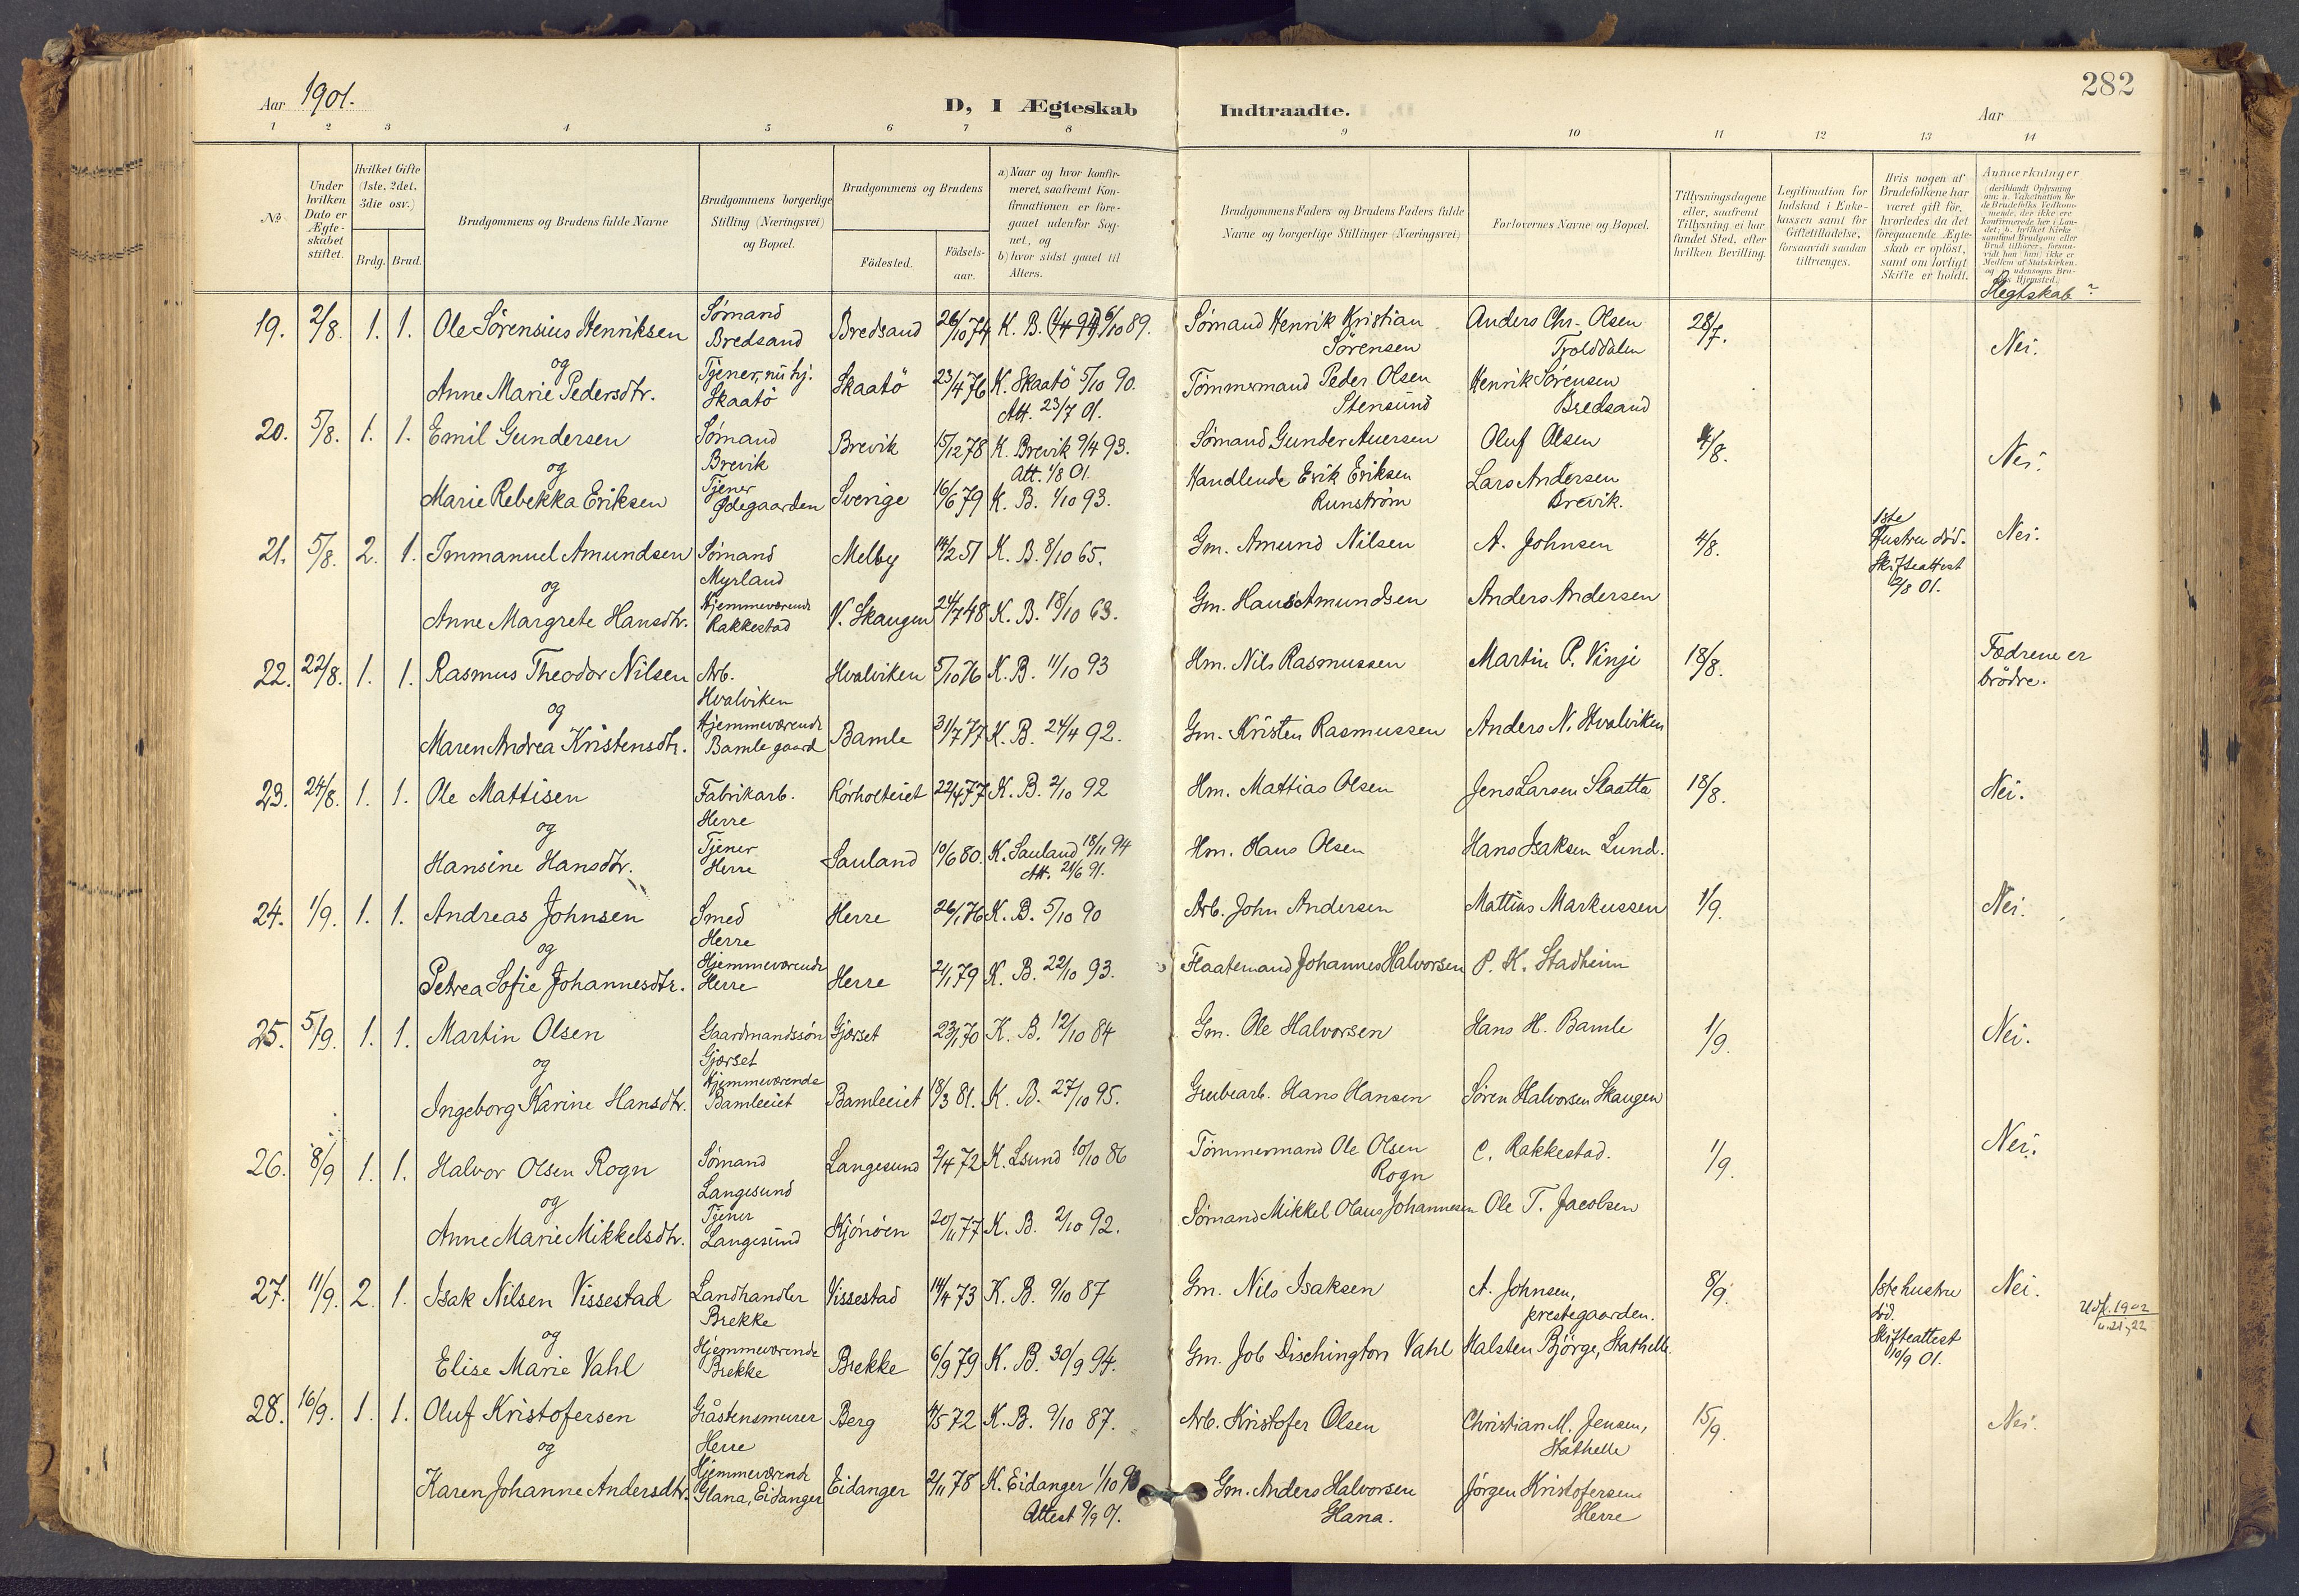 Aar 1901.
D, I Ægteskab Indtraadte.
282
Aar
1 2 3 4 5 6 7 8 9 10 11 12 13 14
№
Under hvilken Dato er Ægteskabet stiftet.
Hvilket Gifte (1ste, 2det, 3die osv.)
Brdg. Brud.
Brudgommens og Brudens fulde Navne
Brudgommens borgerlige Stilling (Næringsvei) og Bopæl.
Brudgommens og Brudens
Födested.
Födselsaar.
a) Naar og hvor konfirmeret, saafremt Konfirmationen er foregaaet udenfor Sognet, og
b) hvor sidst gaaet til Alters.
Brudgommens Faders og Brudens Faders fulde Navne og borgerlige Stillinger (Næringsvei)
Forlovernes Navne og Bopæl.
Tillysningsdagene eller, saafremt Tillysning ei har fundet Sted, efter hvilken Bevilling.
Legitimation for Indskud i Enkekassen samt for Giftetilladelse, forsaavidt saadan tiltrænges.
Hvis nogen af Brudefolkene har været gift för, hvorledes da det foregaaende Ægteskab er oplöst, samt om lovligt Skifte er holdt.
Anmærkninger
Slegtskab?
19. 2/8. 1. 1. Ole Sörensius Henriksen Sömand Bredsand Bredsand 26/10 74 K. B. 6/10 89. Sömand Henrik Kristian Sörensen Anders Chr. Olsen Trolddalen 28/7. Nei.
og
Anne Marie Pedersdtr. Tjener, nu hj. Skaatö Skaatö 23/4 76 K. Skaatö 5/10 90. Att. 23/7 01. Tömmermand Peder Olsen Stensund Henrik Sörensen Bredsand
20. 5/8. 1. 1. Emil Gundersen Sömand Brevik Brevik 15/12 78 K. Brevik 9/4 93. Att. 1/8 01. Sömand Gunder Auersen Oluf Olsen 4/8. Nei.
og
Marie Rebekka Eriksen Tjener Ödegaarden Sverige 16/6 79 K. B. 1/10 93. Handlende Erik Eriksen Runström Lars Andersen Brevik.
21. 5/8. 2. 1. Immanuel Amundsen Sömand Myrland Melby 14/2 51 K. B. 8/10 65. Gm. Amund Nilsen A. Johnsen 4/8. 1ste Hustru död. Skifteattest 2/8 01. Nei.
og
Anne Margrete Hansdtr. Hjemmeværende Rakkestad V. Skaugen 24/7 48 K. B. 18/10 63. Gm. Hans Amundsen Anders Andersen
22. 22/8. 1. 1. Rasmus Theodor Nilsen Arb. Hvalviken Hvalviken 5/10 76 K. B. 11/10 93 Hm. Nils Rasmussen Martin P. Vinje 18/8. Fædrene er brödre.
og
Maren Andrea Kristensdtr. Hjemmeværende Bamle gaard Bamle 31/7 77 K. B. 24/4 92. Gm. Kristen Rasmussen Anders N. Hvalviken
23. 24/8. 1. 1. Ole Mattisen Fabrikarb. Herre Rörholteiet 22/4 77 K. B. 2/10 92 Hm. Mattias Olsen Jens Larsen Slaatta 18/8. Nei.
og
Hansine Hansdtr. Tjener Herre Sauland 10/6 80. K. Sauland 18/11 94 Att. 21/6 91. Hm. Hans Olsen Hans Isaksen Lund.
24. 1/9. 1. 1. Andreas Johnsen Smed Herre Herre 26/1 76 K. B. 5/10 90 Arb. John Andersen Mattias Markussen 1/9. Nei.
og
Petrea Sofie Johannesdtr. Hjemmeværende Herre Herre 21/1 79 K. B. 22/10 93. Flaatemand Johannes Halvorsen P. K. Stadheim
25. 5/9. 1. 1. Martin Olsen Gaardmandssön Gjerset Gjerset 23/1 70 K. B. 12/10 84 Gm. Ole Halvorsen Hans H. Bamle 1/9. Nei.
og
Ingeborg Karine Hansdtr. Hjemmeværende Bamleeiet Bamleeiet 18/3 81. K. B. 27/10 95. Grubearb. Hans Hansen Sören Halvorsen Skaugen
26. 8/9 1. 1. Halvor Olsen Rogn Sömand Langesund Langesund 2/4 72 K. Lsund 10/10 86 Tömmermand Ole Olsen Rogn C. Rakkestad. 1/9. Nei.
og
Anne Marie Mikkelsdtr. Tjener Langesund Kjönöen 20/11 77 K. B. 2/10 92. Sömand Mikkel Olaus Johannesen Ole T. Jacobsen
27. 11/9. 2. 1. Isak Nilsen Vissestad Landhandler Brekke Vissestad 14/4 73 K. B. 9/10 87 Gm. Nils Isaksen A. Johnsen, prestegaarden. 8/9. 1ste hustru död. Skifteattest 10/9 01. Nei. Udf. 1902
og
Elise Marie Vahl Hjemmeværende Brekke Brekke 6/9 79 K. B. 30/9 94. Gm. Job Dischington Vahl Halsten Björge, Stathelle
28. 16/9. 1. 1. Oluf Kristofersen Gråstensmurer Herre Berg 4/5 72 K. B. 9/10 87. Arb. Kristofer Olsen Christian M. Jensen, Stathelle 15/9. Nei.
og
Karen Johanne Andersdtr. Hjemmeværende Glana, Eidanger Eidanger 2/11 78 K. Eidanger 1/10 Attest 9/9 01. Gm. Anders Halvorsen Glana. Jörgen Kristofersen Herre